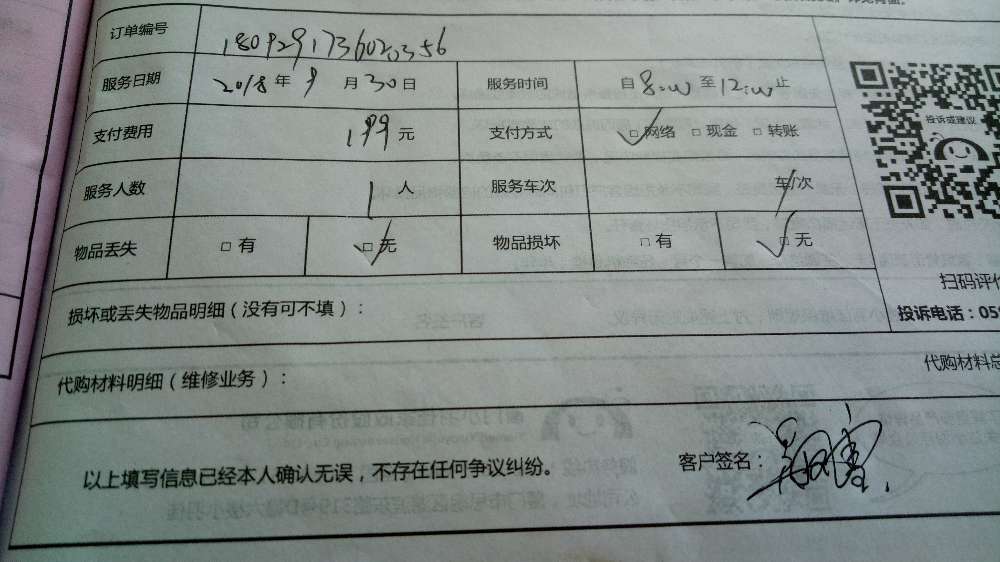 订单编号 1809291736020356
服务日期 2018年9月30日 服务时间 自8:00至12:00止
支付费用 199元 支付方式 □网络 □现金 □转账
服务人数 1人 服务车次 /车/次
物品丢失 □有 □无 物品损坏 □有 □无
投诉或建议
扫码评价
损坏或丢失物品明细（没有可不填）：
投诉电话：059
代购材料总
代购材料明细（维修业务）：
以上填写信息已经本人确认无误，不存在任何争议纠纷。 客户签名：